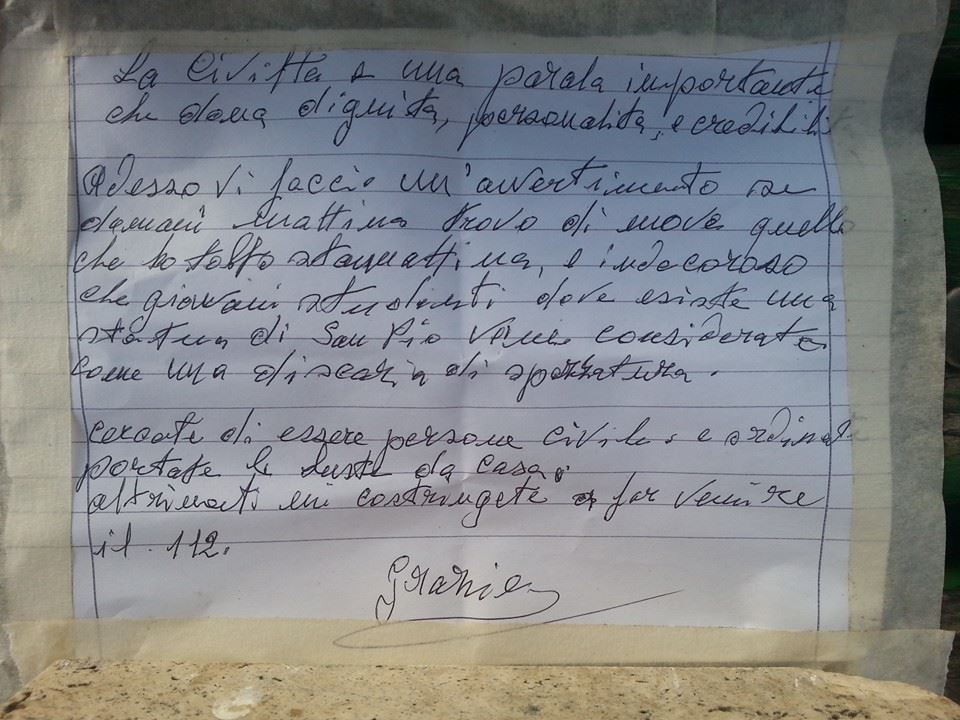 La Civiltà è una parola importante
che dona dignità, personalità, e credibilit
Adesso vi faccio un'avvertimento se
domani mattina trovo di nuova quello
che ho tolto stamattina, e indecoroso
che giovani studenti dove esiste una
statua di San Pio viene considerata
come una discaria di spazzatura.
cercate di essere persone civile. e ordinat
portate le buste da casa,
altrimenti mi costringete a far venire
il. 112.
Grazie